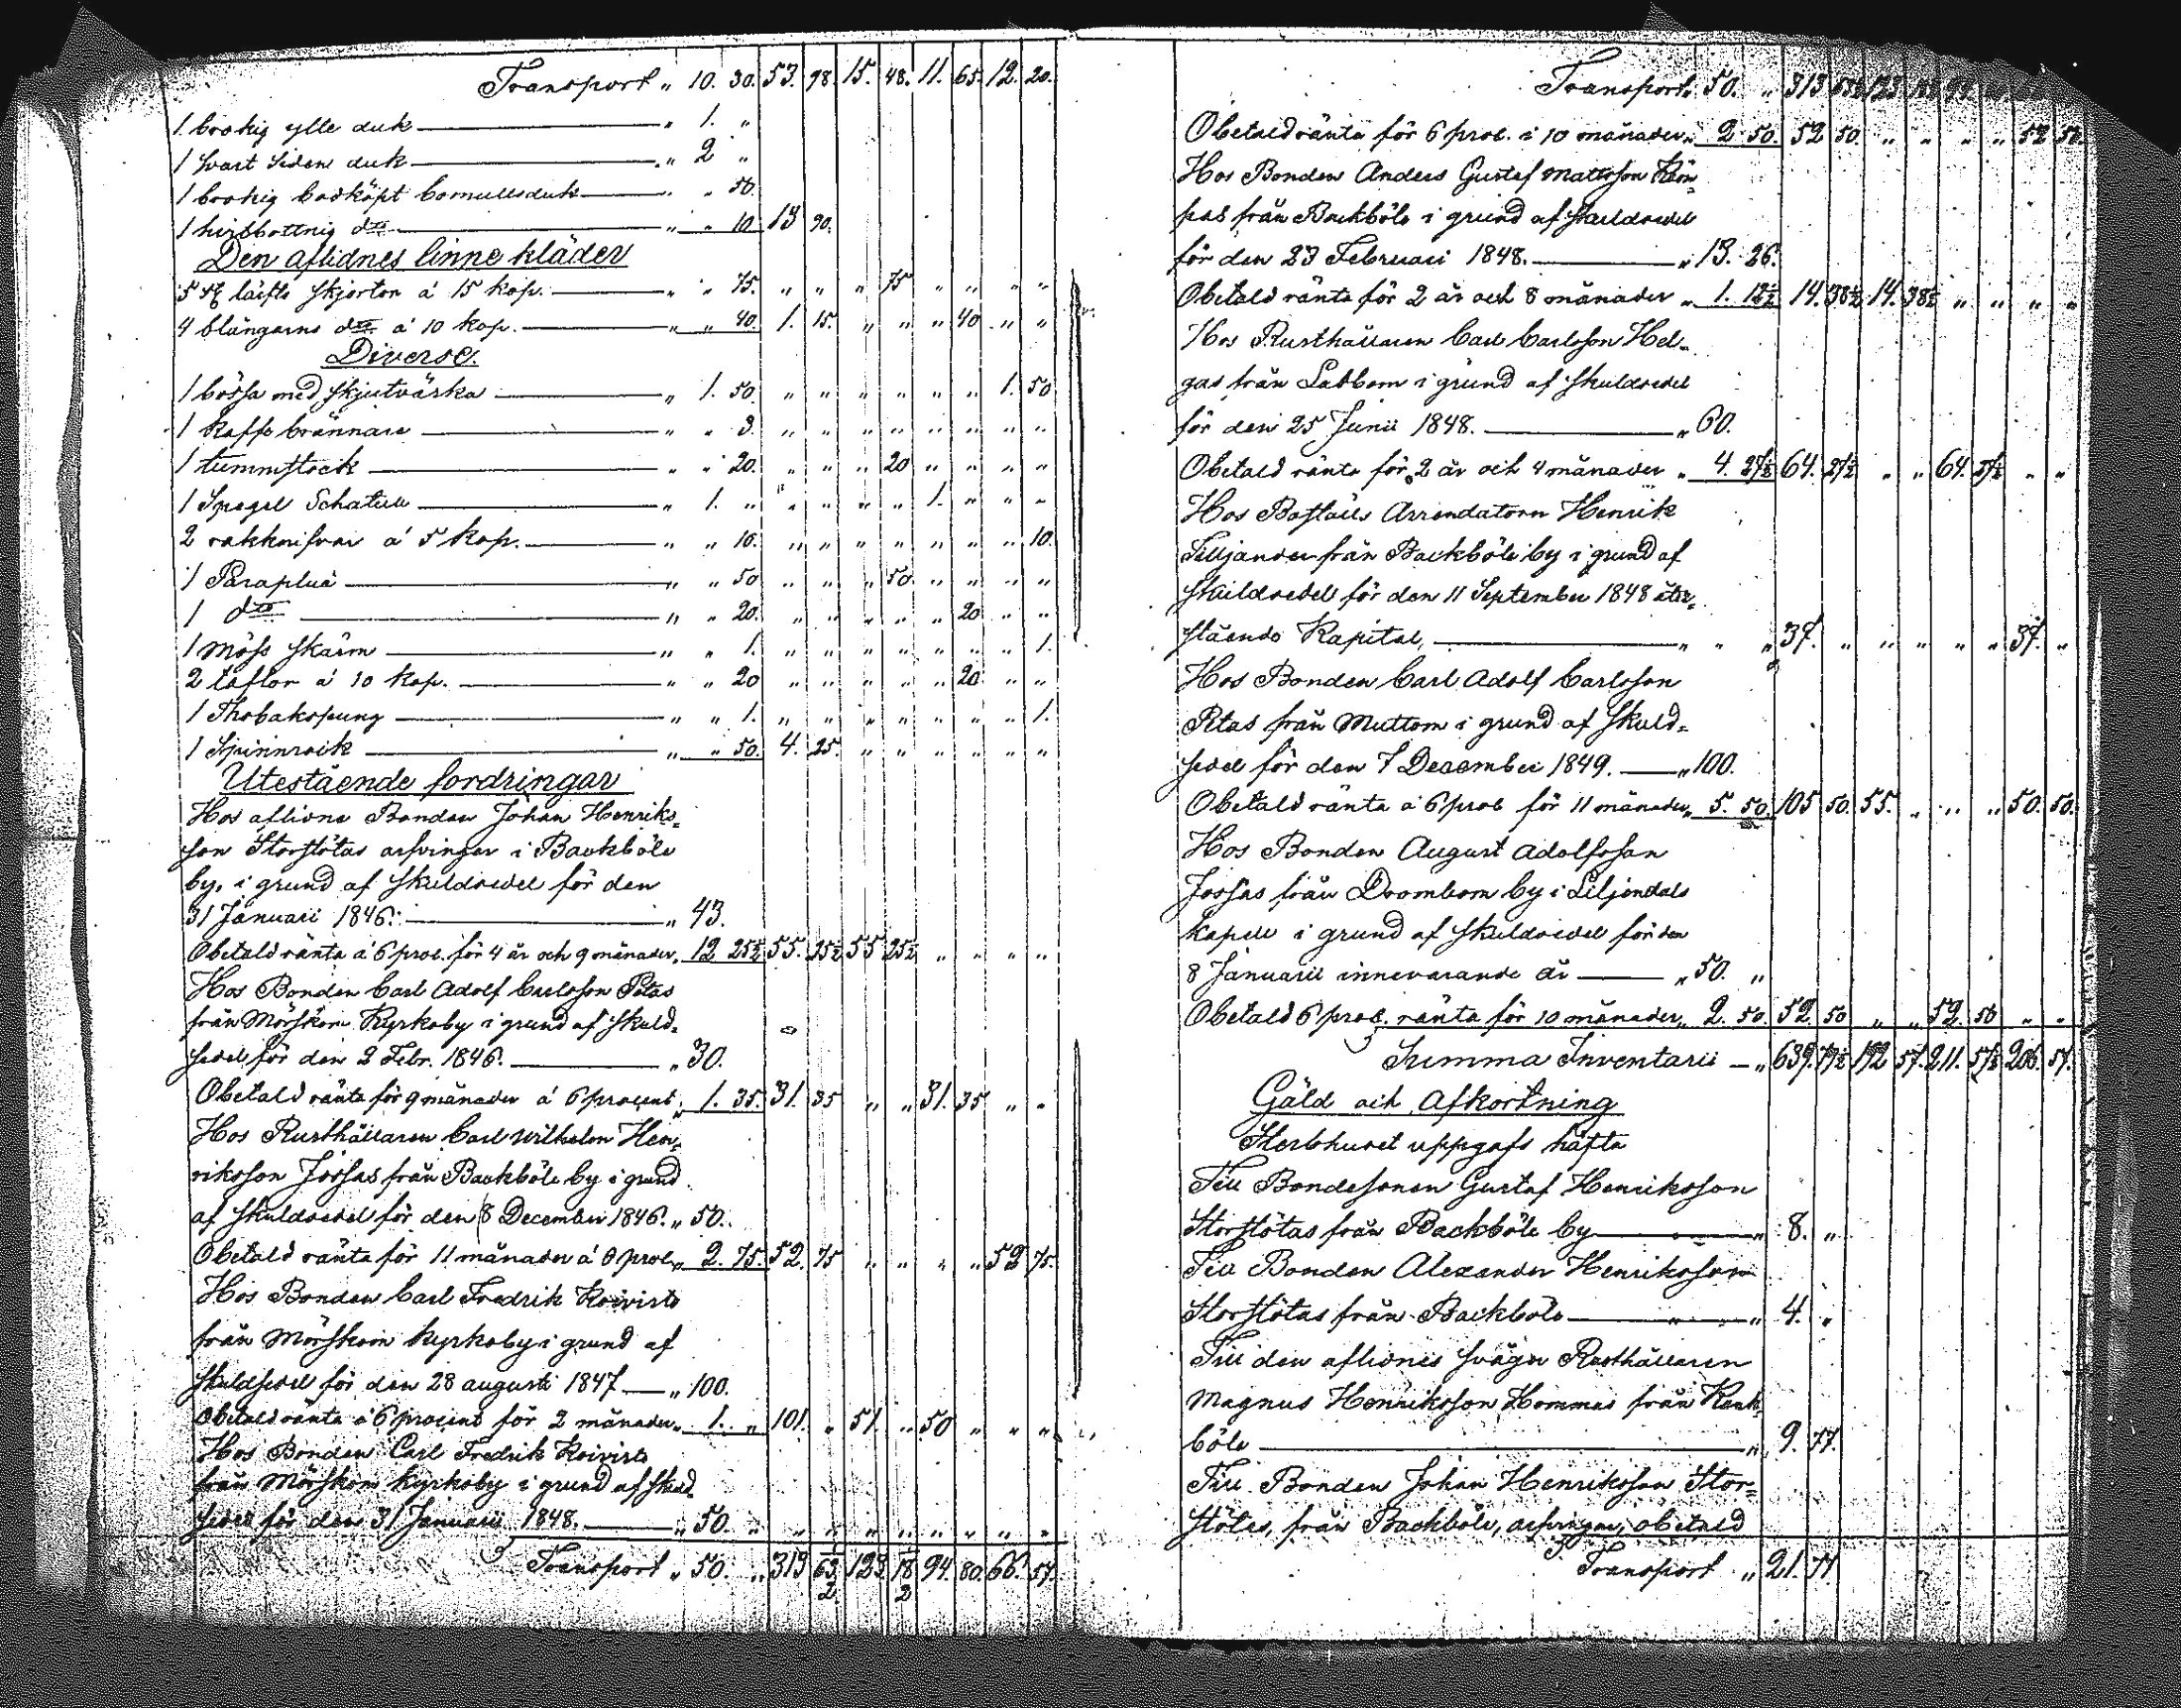 Transport „ 10. 30. 53. 98. 15. 48. 11. 65. 12. 20.
1 brokig ylle duk — „ 1. „
1 svart siden duk — „ 2 „
1 brokig bodköpt bomullsduk — „ „ 50.
1 hvitbottnig dto — „ „ 10. 13 90.
Den aflidnes linne kläder
5 st läifts skjortor á 15 kop. — „ „ 75. „ „ „ 75 „ „ „ „
4 blångarns dto á 10 kop. — „ „ 40. 1. 15. „ „ „ 40 „ „
Diverse.
1 bössa med skjutväska — „ 1. 50. „ „ „ „ „ „ 1. 50
1 kaffe brännare — „ „ 3. „ „ „ „ „ „ „ „
1 tummstock — „ „ 20. „ „ „ 20 „ „ „ „
1 Spegel Schatull — „ 1. „ „ „ „ „ 1. „ „ „
2 rakknifvar á 5 kop. — „ „ 10. „ „ „ „ „ „ „ 10.
1 Paraplua — „ „ 50 „ „ „ 50. „ „ „ „
1 dto — „ „ 20. „ „ „ „ „ 20 „ „
1 möss skärm — „ „ 1. „ „ „ „ „ „ „ 1.
2 taflor á 10 kop. — „ „ 20 „ „ „ „ „ 20 „ „
1 Thobakspung — „ „ 1. „ „ „ „ „ „ „ 1.
1 Spinnrock — „ „ 50. 4. 25. „ „ „ „ „ „
Utestående fordringar
Hos aflidne Bonden Johan Henriks=
son Storstötas arfvingar i Backböle
by, i grund af skuldsedel för den
31 Januarii 1846. — „ 43.
Obetald ränta á 6 proc. för 4 år och 9 månader „ 12 25½ 55. 25½ 55 25½ „ „ „ „
Hos Bonden Carl Adolf Carlsson Pitas
från Mörskom Kyrkoby i grund af skuld=
sedel för den 2 Febr. 1846. — „ 30.
Obetald ränta för 9 månader á 6 procent „ 1. 35. 31. 35 „ „ 31. 35 „ „
Hos Rusthållaren Carl Wilhelm Hen=
riksson Jossas från Backböle by i grund
af skuldsedel för den 8 December 1846. „ 50.
Obetald ränta för 11 månader á 6 proc. „ 2. 75. 52. 75 „ „ „ „ 52 75.
Hos Bonden Carl Fredrik Koivisto
från Mörskom kyrkoby i grund af
skuldsedel för den 28 augusti 1847 — „ 100.
Obetald ränta á 6 procent för 2 månader „ 1. „ 101. „ 51. „ 50 „ „ „
Hos Bonden Carl Fredrik Koivisto
från Mörskom kyrkoby i grund af skuld=
sedel för den 31 Januarii 1848. — „ 50. „ „ „ „ „ „ „ „ „
Transport „ 50. „ 313 63½ 123 13½ 94. 80. 66. 57.
Transport „ 50. „ 313 63½ 123
Obetald ränta för 6 proc. i 10 månader „ 2. 50. 52 50. „ „ „ „ 52 50.
Hos Bonden Anders Gustaf Mattsson
pas från Backböle i grund af skuldsedel
för den 23 Februari 1848. — „ 13. 26.
Obetald ränta för 2 år och 8 månader „ 1. 12½ 14. 38½ 14. 38½ „ „ „ „
Hos Rusthållaren Carl Carlsson Hel=
gas från Labbom i grund af skuldsedel
för den 25 Junii 1848. — „ 60.
Obetald ränta för 2 år och 4 månader „ 4. 27½ 64. 27½ „ „ 64. 27½ „ „
Hos Boställs Arrendatorn Henrik
Silljander från Backböle by i grund af
skuldsedel för den 11 September 1848 åter=
stående Kapital, — „ „ „ 37. „ „ „ „ „ 37. „
Hos Bonden Carl Adolf Carlsson
Pitas från Muttom i grund af skuld=
sedel för den 7 December 1849. — „ 100.
Obetald ränta á 6 proc för 11 månader „ 5. 50. 105 50. 55. „ „ „ 50. 50.
Hos Bonden August Adolfsson
Jossas från Drombom by i Liljendals
kapell i grund af skuldsedel för den
8 Januarii innevarande år — „ 50. „
Obetald 6 proc. ränta för 10 månader „ 2. 50. 52 50 „ „ 52. 50 „ „
Summa Inventarii — „ 639. 79½ 192 57. 211. 57½ 206. 57.
Gäld och Afkortning
Sterbhuset uppgafs häfta
Till Bondesonen Gustaf Henriksson
Storstötas från Backböle by — „ 8. „
Till Bonden Alexander Henriksson
Storstötas från Backböle — „ 4. „
Till den aflidnes svåger Rusthållaren
Magnus Henriksson Hommas från
böle — „ 9. 77.
Till Bonden Johan Henriksson Stor=
stötas, från Backböle, arfvingar, obetald
Transport „ 21. 77.